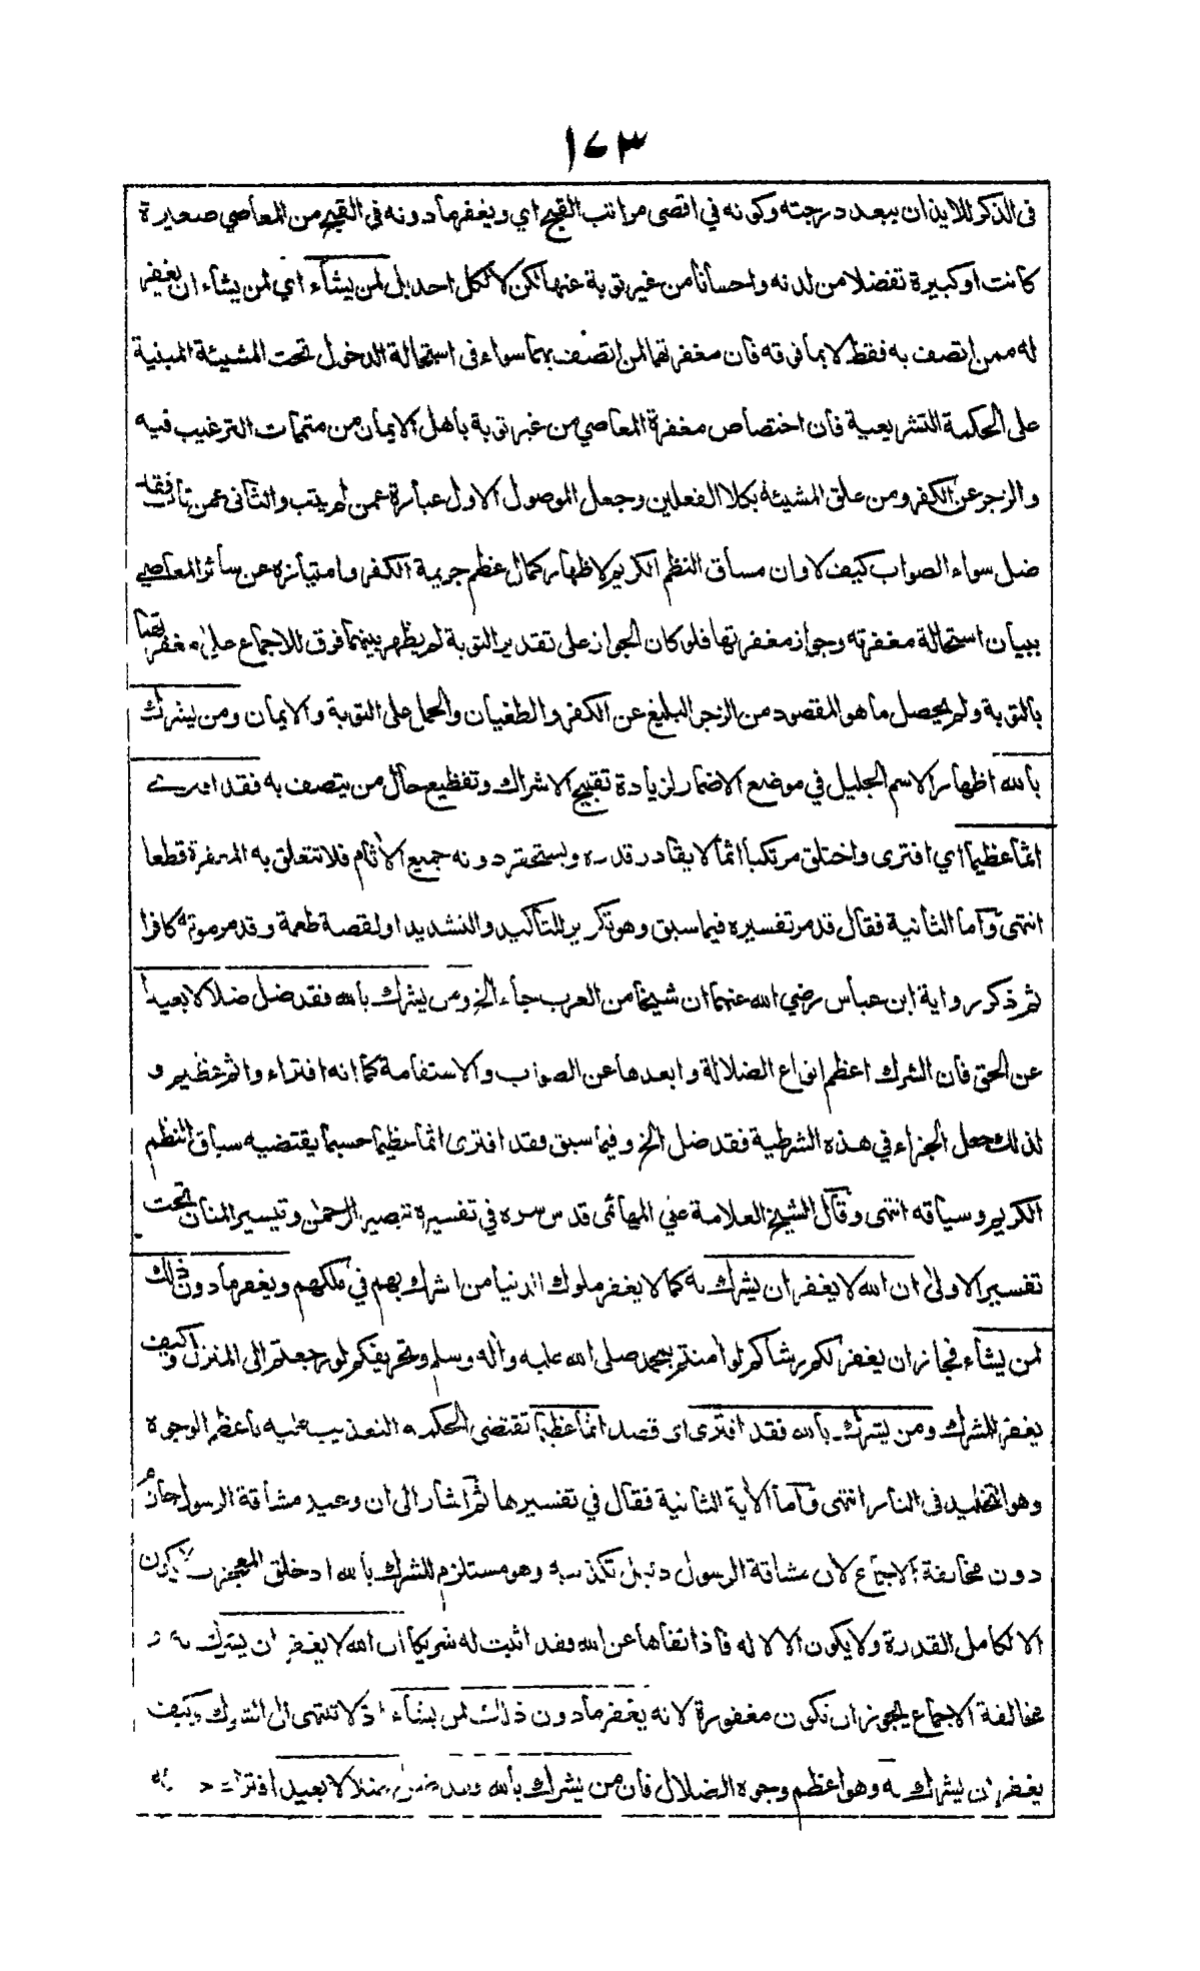 ١٧٣
فى الذكر للايذان ببعد درجته وكونه في اقصى مراتب القبح اي ويغفر ما دونه فى القبح من المعاصي صغيرة
كانت او كبيرة تفضلا من لدنه واحسانا من غير توبة عنها لكن لا لكل احد بل لمن يشاء اي لمن يشاء ان يغفر
له ممن اتصف به فقط لا بما فوقه فان مغفرتهما لمن اتصف بهما سواء فى استحالة الدخول تحت المشيئة المبنية
على الحكمة التشريعية فان اختصاص مغفرة المعاصي من غير توبة باهل الايمان من متممات الترغيب فيه
والزجر عن الكفر ومن علق المشيئة بكلا الفعلين وجعل الموصول الاول عبارة عمن لم يتب والثانى عمن تاب فقد
ضل سواء الصواب كيف لا وان مساق النظم الكريم لاظهار كمال عظم جريمة الكفر وامتيازه عن سائر المعاصي
ببيان استحالة مغفرته وجواز مغفرتها فلو كان الجواز على تقدير التوبة لم يظهر بينهما فرق للاجماع على مغفرتهما
بالتوبة ولم يحصل ما هو المقصود من الزجر البليغ عن الكفر والطغيان والحمل على التوبة والايمان ومن يشرك
بالله اظهار الاسم الجليل في موضع الاضمار لزيادة تقبيح الاشراك وتفظيع حال من يتصف به فقد افترى
اثما عظيما اي افترى واختلق مرتكبا اثما لا يقادر قدره ويستحقر دونه جميع الآثام فلا تتعلق به المغفرة قطعا
انتهى وآما الثانية فقال قد مر تفسيره فيما سبق وهو تكرير للتأكيد والتشديد او لقصة طعمة وقد مر موته كافرا
ثم ذكر رواية ابن عباس رضي الله عنهما ان شيخا من العرب جاء الخ ومن يشرك بالله فقد ضل ضلالا بعيدا
عن الحق فان الشرك اعظم انواع الضلالة وابعدها عن الصواب والاستقامة كما انه افتراء واثم عظيم و
لذلك جعل الجزاء في هذه الشرطية فقد ضل الخ وفيما سبق فقد افترى اثما عظيما حسبما يقتضيه سباق النظم
الكريم وسياقه انتهى وقال الشيخ العلامة علي المهائمى قدس سره في تفسيره تبصير الرحمن وتيسير المنان تحت
تفسير الاولى ان الله لا يغفر ان يشرك به كما لا يغفر ملوك الدنيا من اشرك بهم في ملكهم ويغفر ما دون ذلك
لمن يشاء فجاز ان يغفر لكم رشاكم لو امنتم بمحمد صلى الله عليه واله وسلم وتحريفكم لو رجعتم الى المنزل وكيف
يغفر للشرك ومن يشرك بالله فقد افترى اى قصد اثما عظيما تقتضى الحكمة التعذيب عليه باعظم الوجوه
وهو التخليد فى النار انتهى وآما الآية الثانية فقال في تفسيرها ثم اشار الى ان وعيد مشاقة الرسول جازم
دون مخالفة الاجماع لان مشاقة الرسول تكذيبه وهو مستلزم للشرك بالله اذ خلق المعجزات لا يكون
الا لكامل القدرة ولا يكون الا لاله فاذا نفاها عن الله فقد اثبت له شريكا ان الله لا يغفر ان يشرك به و
مخالفة الاجماع يجوز ان تكون مغفورة لانه يغفر ما دون ذلك لمن يشاء اذ لا تنتهى الى الشرك وكيف
يغفر ان يشرك به وهو اعظم وجوه الضلال فان من يشرك بالله فقد ضل ضلالا بعيدا